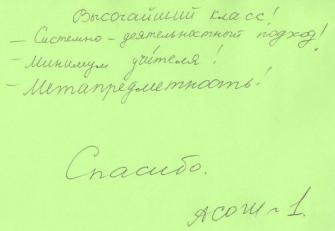 Высочайший класс!
- Системно - деятельностный подход!
- Минимум учителя!
- Метапредметность!
Спасибо.
ЯСОШ №1.